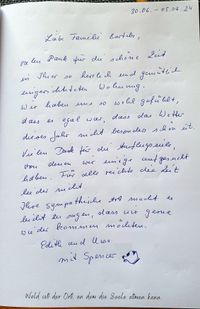 30.06. – 05.07.24
Liebe Familie
vielen Dank für die schöne Zeit
in Ihrer so herrlich und gemütlich
eingerichteten Wohnung.
Wir haben uns so wohl gefühlt,
dass es egal war, dass das Wetter
dieses Jahr nicht besonders schön ist.
Vielen Dank für die Ausflugsziele,
von denen wir einige aufgesucht
haben. Für alle reichte die Zeit
leider nicht.
Ihre sympathische Art macht es
leicht zu sagen, dass wir gerne
wieder kommen möchten.
Edith und Uwe
mit Spencer
Wald ist der Ort, an dem die Seele atmen kann.